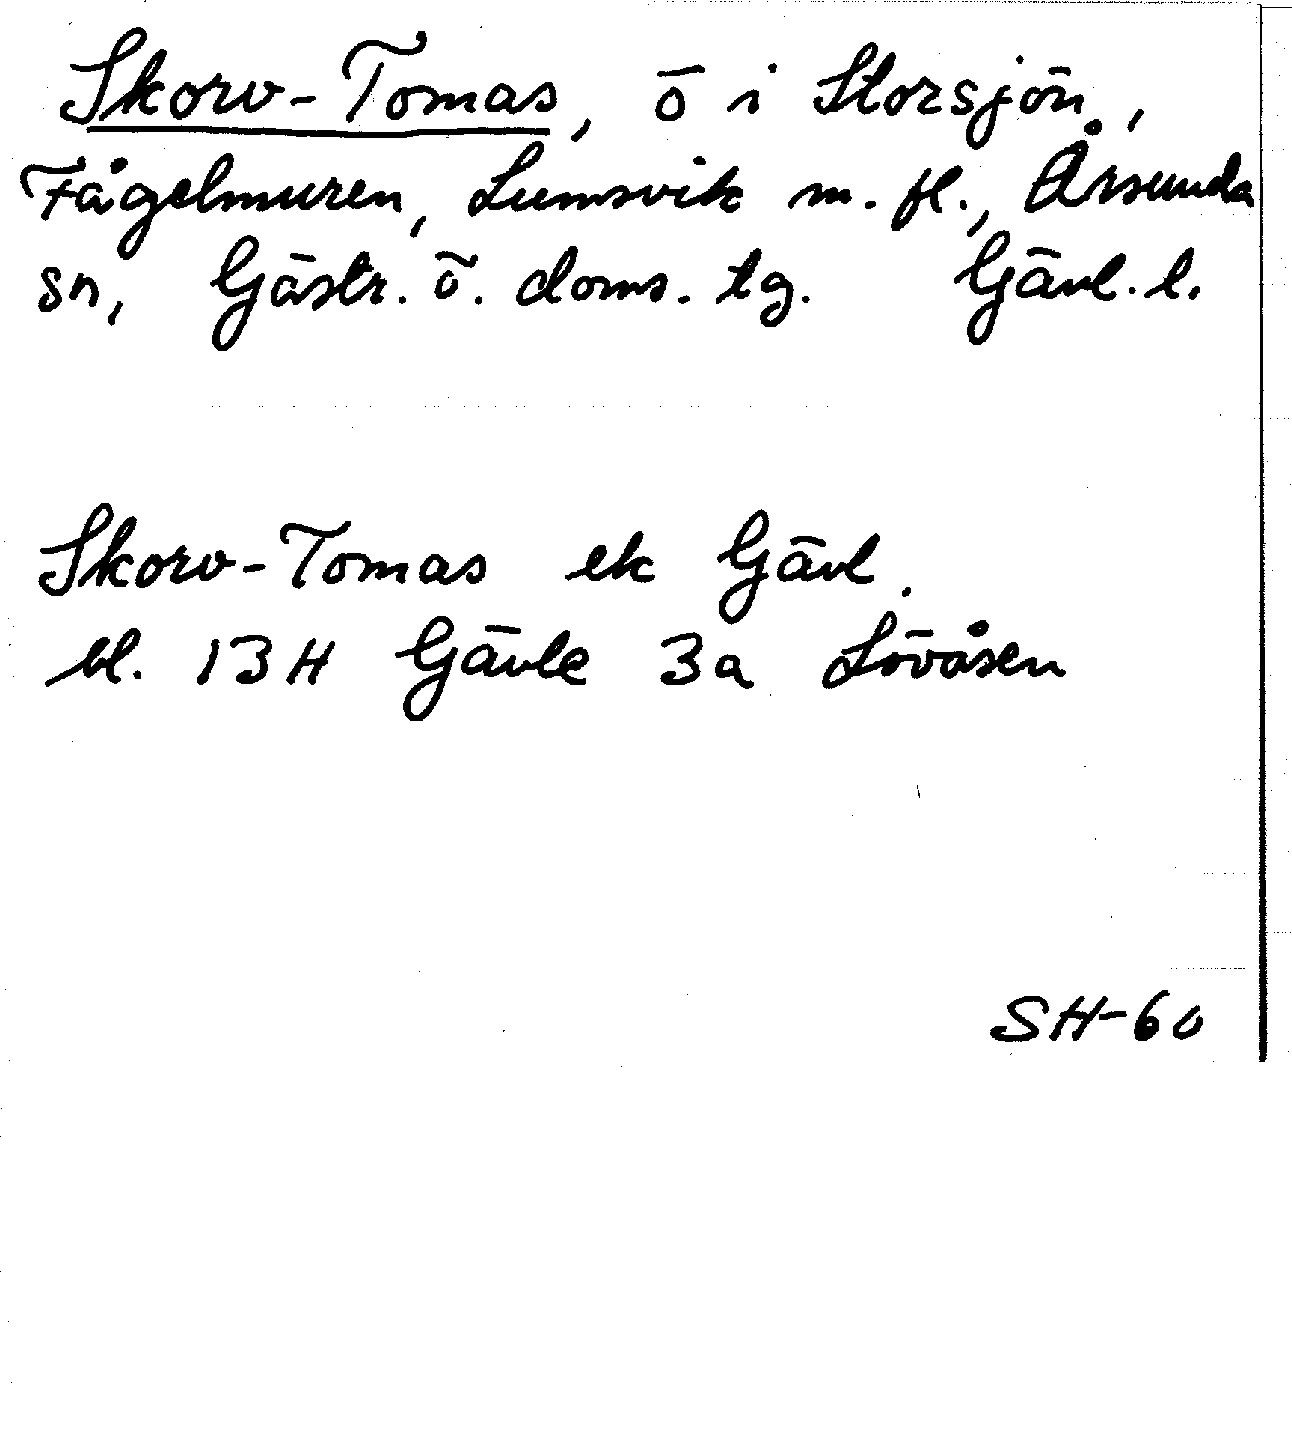 Skorv-Tomas, ö i Storsjön,
Fågelmuren, Lumsvik m. fl., Årsunda
sn, Gästr. ö. doms. tg. Gävl. l.
Skorv-Tomas ek Gävl.
bl. 13H Gävle 3a Lövåsen
SH-60